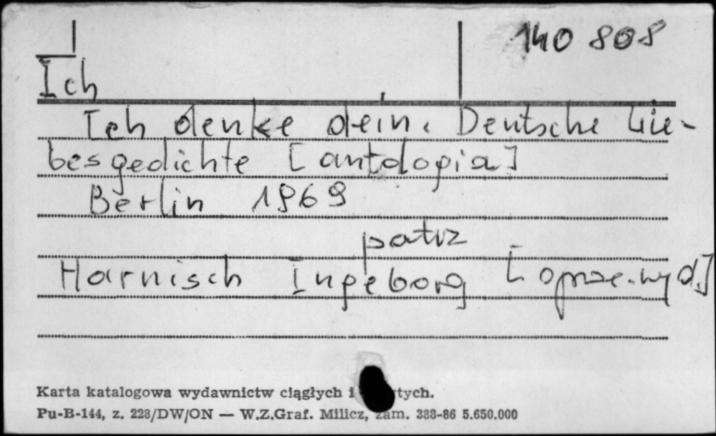 140 808
Ich
Ich denke dein. Deutsche Lie-
besgedichte [antologia]
Berlin 1969
patrz
Harnisch Ingeborg [oprac. wyd.]
Karta katalogowa wydawnictw ciągłych i
Pu-B-144, z. 228/DW/ON — W.Z.Graf. Milicz, zam. 388-86 5.650.000